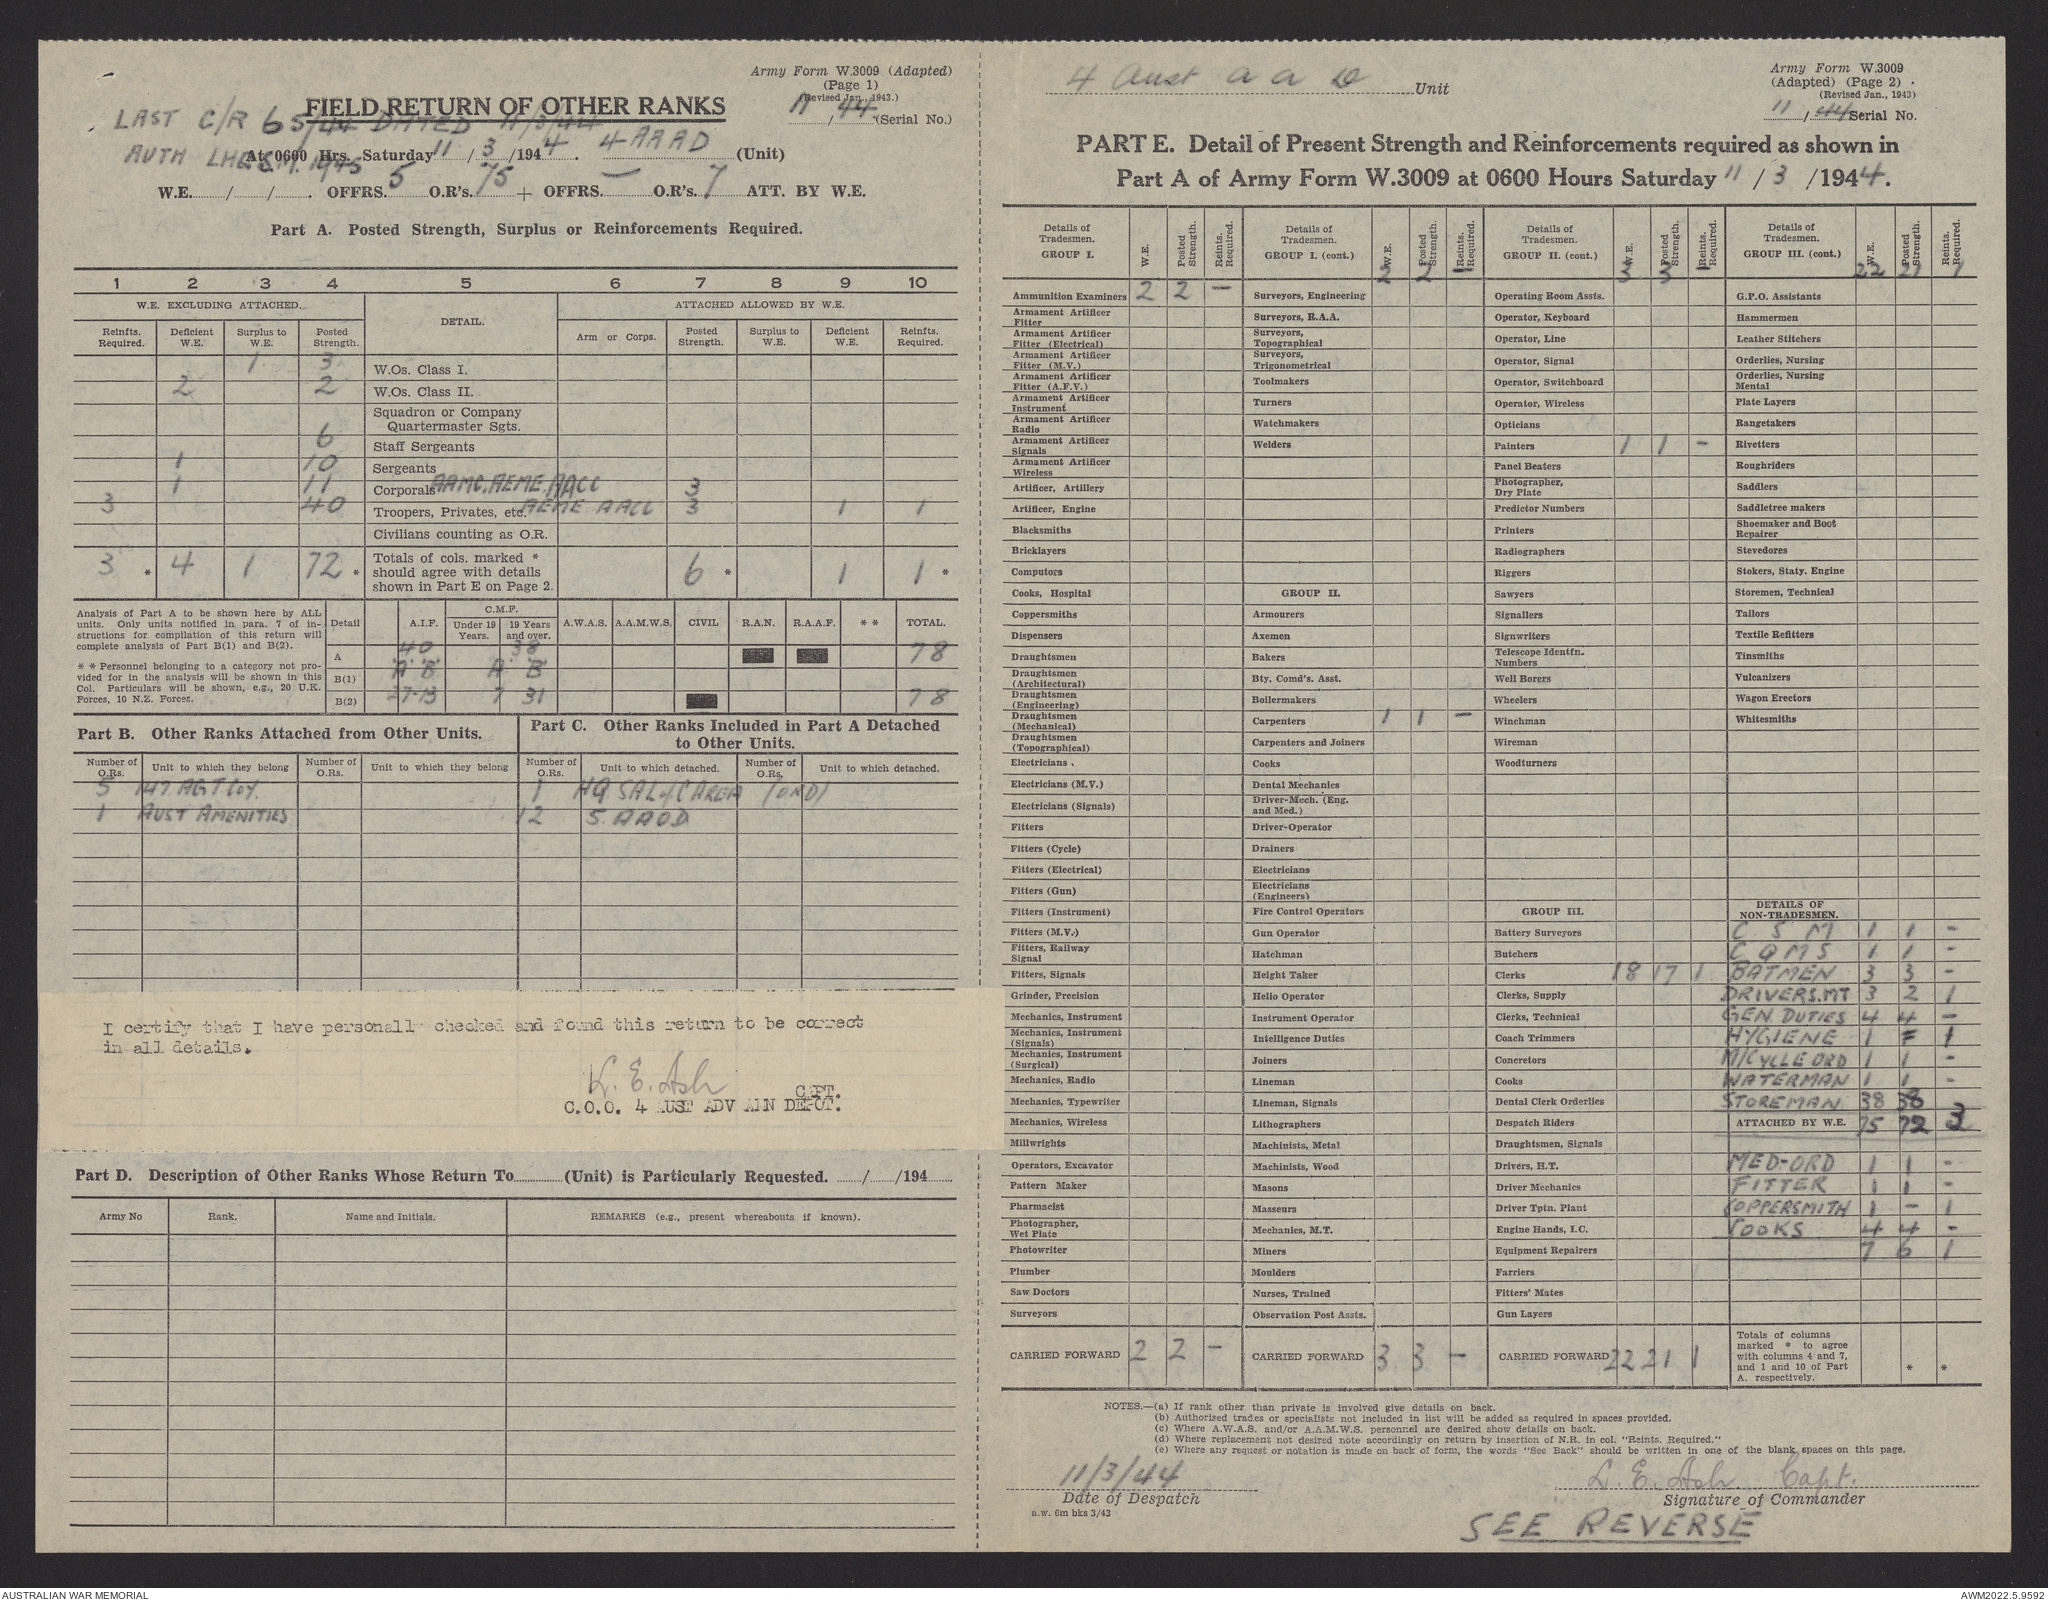 Army Form W.3009 (Adapted)
(Page 1)
(Revised Jan., 1943.)
FIELD RETURN OF OTHER RANKS
11/44 (Serial No.)
LAST C/R 65/44 DATED 11/3/44
AUTH LHQ S.M. 1945
At 0600 Hrs. Saturday 11/3/1944. 4 AAAD (Unit)
W.E. / / . OFFRS. 5 O.R's. 75 + OFFRS. — O.R's. 7 ATT. BY W.E.
Part A. Posted Strength, Surplus or Reinforcements Required.
1 2 3 4 5 6 7 8 9 10
W.E. EXCLUDING ATTACHED. DETAIL. ATTACHED ALLOWED BY W.E.
Reinfts. Required. Deficient W.E. Surplus to W.E. Posted Strength. Arm or Corps. Posted Strength. Surplus to W.E. Deficient W.E. Reinfts. Required.
1 3 W.Os. Class I.
2 2 W.Os. Class II.
Squadron or Company
Quartermaster Sgts.
6 Staff Sergeants
1 10 Sergeants
1 11 Corporals AAMC, AEME, AACC 3
3 40 Troopers, Privates, etc. AEME AACC 3 1 1
Civilians counting as O.R.
3 * 4 1 72 * Totals of cols. marked * should agree with details shown in Part E on Page 2. 6 * 1 1 *
Analysis of Part A to be shown here by ALL
units. Only units notified in para. 7 of in-
structions for compilation of this return will
complete analysis of Part B(1) and B(2).
* * Personnel belonging to a category not pro-
vided for in the analysis will be shown in this
Col. Particulars will be shown, e.g., 20 U.K.
Forces, 10 N.Z. Forces.
C.M.F.
Detail A.I.F. Under 19 Years. 19 Years and over. A.W.A.S. A.A.M.W.S. CIVIL R.A.N. R.A.A.F. * * TOTAL.
A 40 38 78
B(1) A B A B
B(2) 27-13 7 31 78
Part B. Other Ranks Attached from Other Units.
Number of O.Rs. Unit to which they belong Number of O.Rs. Unit to which they belong
5 147 AGT Coy.
1 AUST AMENITIES
Part C. Other Ranks Included in Part A Detached
to Other Units.
Number of O.Rs. Unit to which detached. Number of O.Rs. Unit to which detached.
1 HQ SAL of C AREA (ORD)
12 5 AAOD
I certify that I have personally checked and found this return to be correct
in all details.
L. E. Ash
CAPT.
C.O.O. 4 AUST ADV AMN DEPOT.
Part D. Description of Other Ranks Whose Return To (Unit) is Particularly Requested. / /194
Army No Rank. Name and Initials. REMARKS (e.g., present whereabouts if known).
4 Aust a a D Unit
Army Form W.3009
(Adapted) (Page 2)
(Revised Jan., 1943)
11/44 Serial No.
PART E. Detail of Present Strength and Reinforcements required as shown in
Part A of Army Form W.3009 at 0600 Hours Saturday 11/3/1944.
Details of Tradesmen. GROUP I. W.E. Posted Strength. Reints. Required.
Ammunition Examiners 2 2 -
Armament Artificer Fitter
Armament Artificer Fitter (Electrical)
Armament Artificer Fitter (M.V.)
Armament Artificer Fitter (A.F.V.)
Armament Artificer Instrument
Armament Artificer Radio
Armament Artificer Signals
Armament Artificer Wireless
Artificer, Artillery
Artificer, Engine
Blacksmiths
Bricklayers
Computors
Cooks, Hospital
Coppersmiths
Dispensers
Draughtsmen
Draughtsmen (Architectural)
Draughtsmen (Engineering)
Draughtsmen (Mechanical)
Draughtsmen (Topographical)
Electricians
Electricians (M.V.)
Electricians (Signals)
Fitters
Fitters (Cycle)
Fitters (Electrical)
Fitters (Gun)
Fitters (Instrument)
Fitters (M.V.)
Fitters, Railway Signal
Fitters, Signals
Grinder, Precision
Mechanics, Instrument
Mechanics, Instrument (Signals)
Mechanics, Instrument (Surgical)
Mechanics, Radio
Mechanics, Typewriter
Mechanics, Wireless
Millwrights
Operators, Excavator
Pattern Maker
Pharmacist
Photographer, Wet Plate
Photowriter
Plumber
Saw Doctors
Surveyors
CARRIED FORWARD 2 2 -
Details of Tradesmen. GROUP I. (cont.) W.E. Posted Strength. Reints. Required.
2 2 -
Surveyors, Engineering
Surveyors, R.A.A.
Surveyors, Topographical
Surveyors, Trigonometrical
Toolmakers
Turners
Watchmakers
Welders
GROUP II.
Armourers
Axemen
Bakers
Bty. Comd's. Asst.
Boilermakers
Carpenters 1 1 -
Carpenters and Joiners
Cooks
Dental Mechanics
Driver-Mech. (Eng. and Med.)
Driver-Operator
Drainers
Electricians
Electricians (Engineers)
Fire Control Operators
Gun Operator
Hatchman
Height Taker
Helio Operator
Instrument Operator
Intelligence Duties
Joiners
Lineman
Lineman, Signals
Lithographers
Machinists, Metal
Machinists, Wood
Masons
Masseurs
Mechanics, M.T.
Miners
Moulders
Nurses, Trained
Observation Post Assts.
CARRIED FORWARD 3 3 -
Details of Tradesmen. GROUP II. (cont.) W.E. Posted Strength. Reints. Required.
3 3 -
Operating Room Assts.
Operator, Keyboard
Operator, Line
Operator, Signal
Operator, Switchboard
Operator, Wireless
Opticians
Painters 1 1 -
Panel Beaters
Photographer, Dry Plate
Predictor Numbers
Printers
Radiographers
Riggers
Sawyers
Signallers
Signwriters
Telescope Identfn. Numbers
Well Borers
Wheelers
Winchman
Wireman
Woodturners
GROUP III.
Battery Surveyors
Butchers
Clerks 18 17 1
Clerks, Supply
Clerks, Technical
Coach Trimmers
Concretors
Cooks
Dental Clerk Orderlies
Despatch Riders
Draughtsmen, Signals
Drivers, H.T.
Driver Mechanics
Driver Tptn. Plant
Engine Hands, I.C.
Equipment Repairers
Farriers
Fitters' Mates
Gun Layers
CARRIED FORWARD 22 21 1
Details of Tradesmen. GROUP III. (cont.) W.E. Posted Strength. Reints. Required.
22 21 1
G.P.O. Assistants
Hammermen
Leather Stitchers
Orderlies, Nursing
Orderlies, Nursing Mental
Plate Layers
Rangetakers
Rivetters
Roughriders
Saddlers
Saddletree makers
Shoemaker and Boot Repairer
Stevedores
Stokers, Staty. Engine
Storemen, Technical
Tailors
Textile Refitters
Tinsmiths
Vulcanizers
Wagon Erectors
Whitesmiths
DETAILS OF NON-TRADESMEN.
C S M 1 1 -
C Q M S 1 1 -
BATMEN 3 3 -
DRIVERS. MT 3 2 1
GEN. DUTIES 4 4 -
HYGIENE 1 - 1
M/CYCLE ORD 1 1 -
WATERMAN 1 1 -
STOREMAN 38 38
ATTACHED BY W.E. 75 72 3
MED-ORD 1 1 -
FITTER 1 1 -
COPPERSMITH 1 - 1
COOKS 4 4 -
7 6 1
Totals of columns marked * to agree with columns 4 and 7, and 1 and 10 of Part A. respectively. * *
NOTES.—(a) If rank other than private is involved give details on back.
(b) Authorised trades or specialists not included in list will be added as required in spaces provided.
(c) Where A.W.A.S. and/or A.A.M.W.S. personnel are desired show details on back.
(d) Where replacement not desired note accordingly on return by insertion of N.R. in col. "Reints. Required."
(e) Where any request or notation is made on back of form, the words "See Back" should be written in one of the blank spaces on this page.
11/3/44
Date of Despatch
a.w. 6m bks 3/43
L. E. Ash Capt.
Signature of Commander
SEE REVERSE
AUSTRALIAN WAR MEMORIAL
AWM2022.5.9592